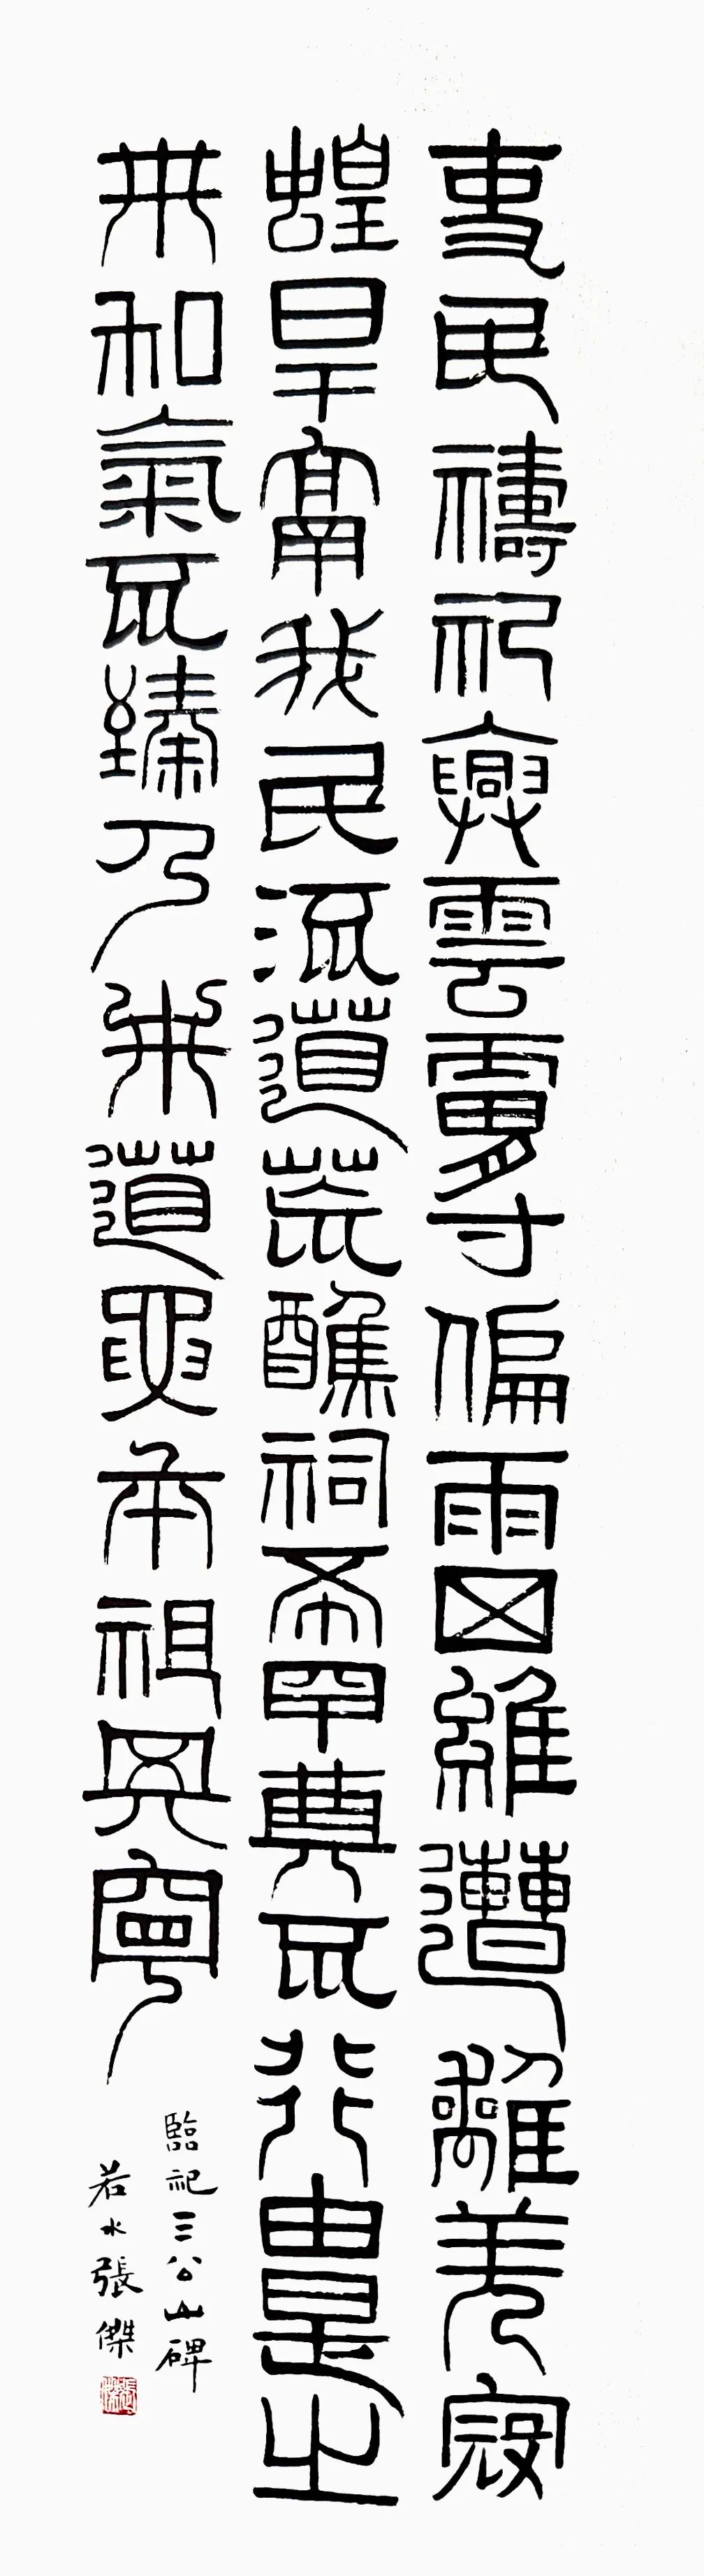 吏民禱祀興雲膚寸偏雨四維遭離羌寇
蝗旱鬲我民流道荒醮祠希罕奠不行由是之
來和氣不臻乃求道要本祖其寧
臨祀三公山碑
若水張傑